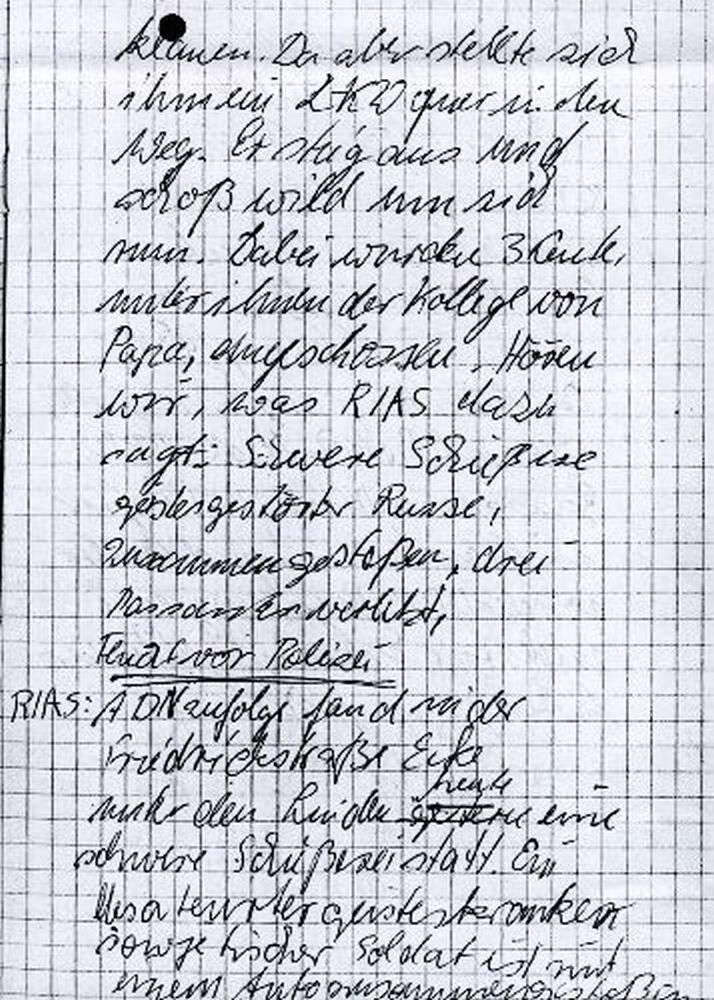 klauen. Da aber stellte sich
ihm ein LKW quer in den
Weg. Er stieg aus und
schoß wild um sich
rum. Dabei wurden 3 Leute,
unter ihnen der Kollege von
Papa, angeschossen. Hören
wir, was RIAS dazu
sagt: Schwere Schießerei
geistesgestörter Russe,
zusammengestoßen, drei
Passanten verletzt,
Flucht vor Polizei
RIAS: ADN zufolge fand in der
Friedrichstraße Ecke
heute
unter den Linden gestern eine
schwere Schießerei statt. Ein
geisteskranker
sowjetischer Soldat ist mit
einem Auto zusammengestoßen